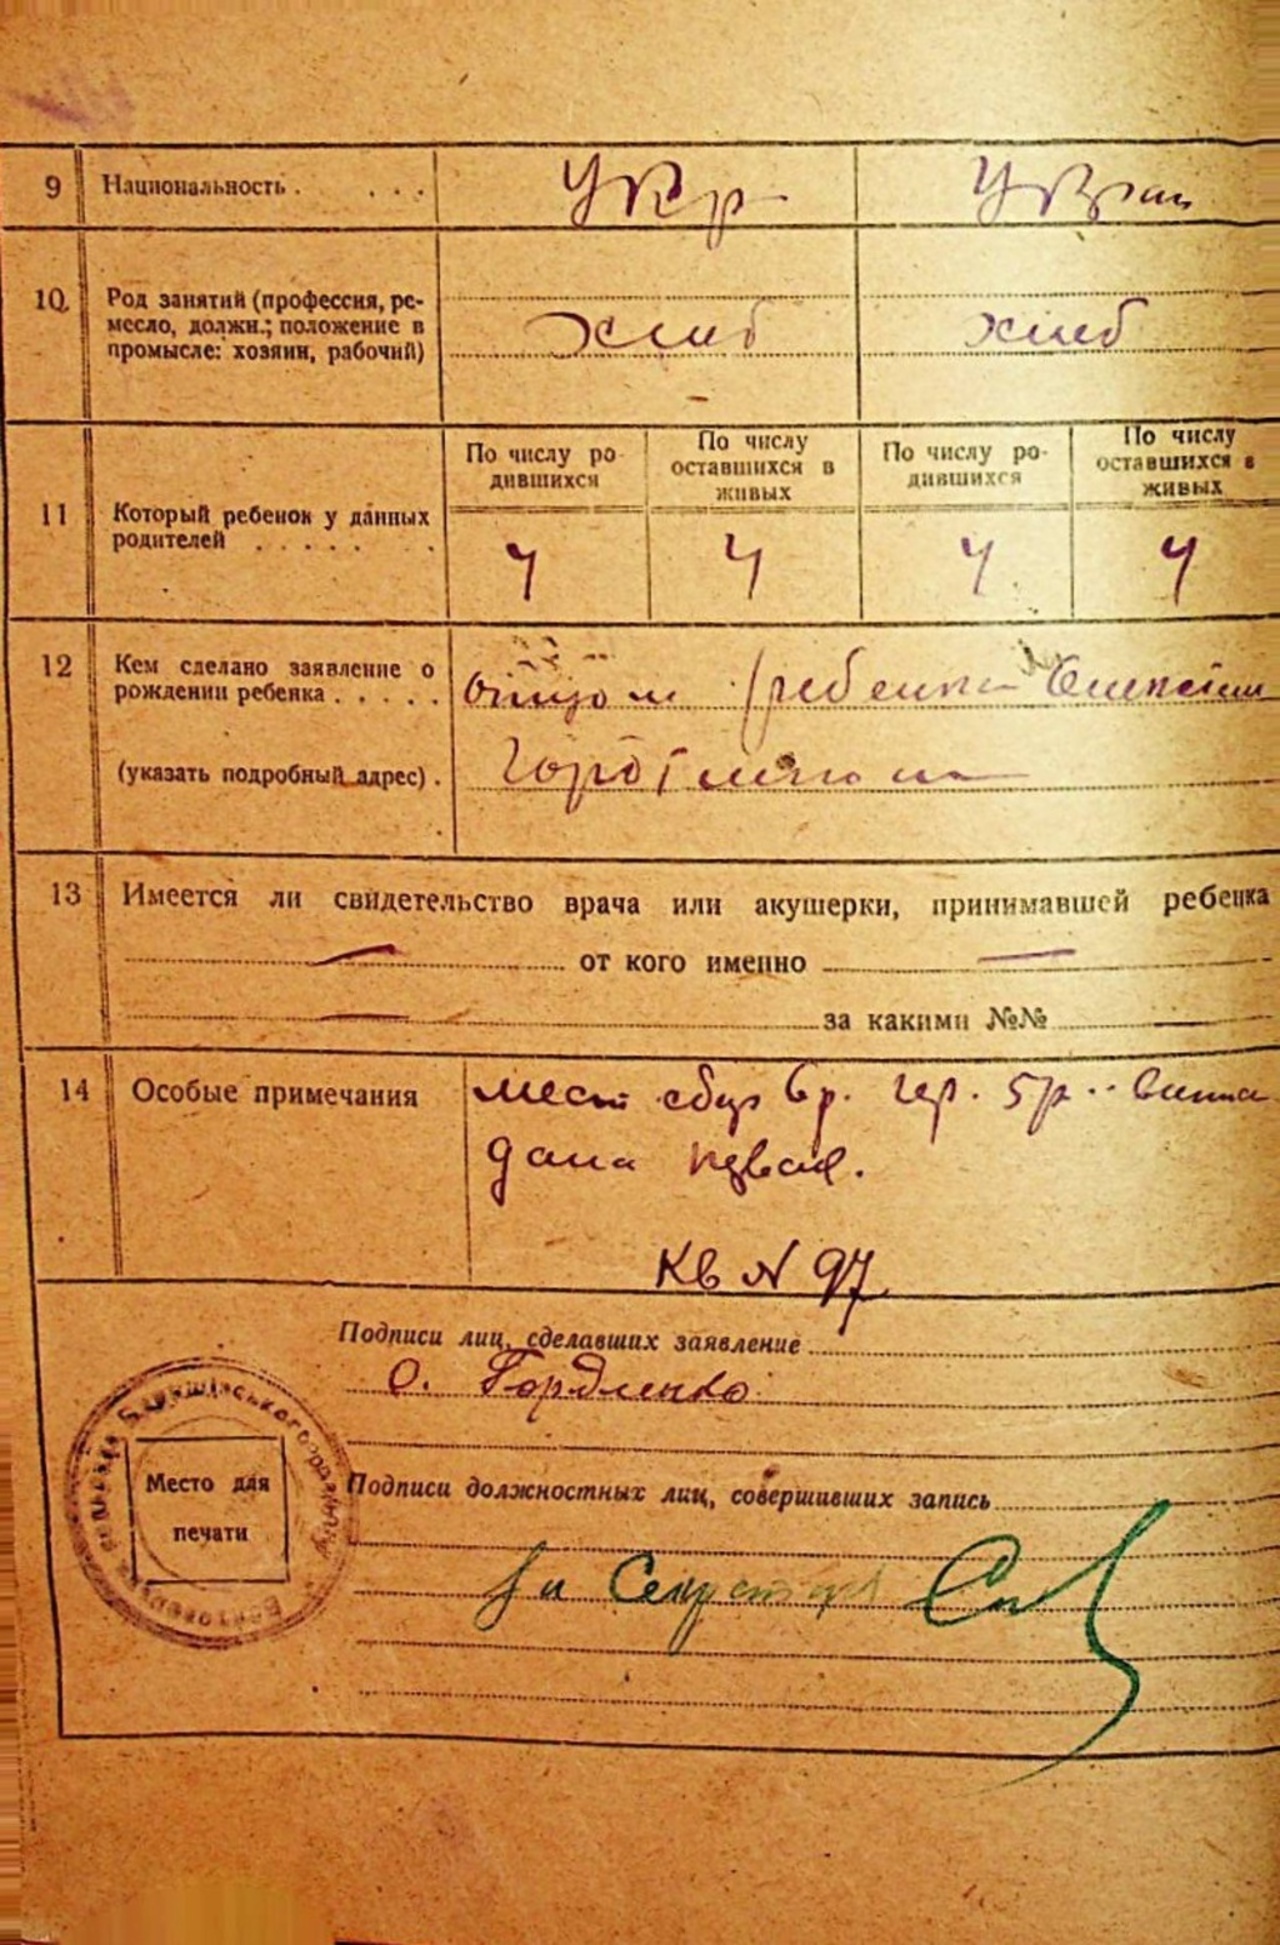 9 Национальность . . . . Укр Украи
10 Род занятий (профессия, ре-
месло, должн.; положение в
промысле: хозяин, рабочий)
хлиб хлиб
По числу ро-
дившихся
По числу
оставшихся в
живых
По числу ро-
дившихся
По числу
оставшихся в
живых
11 Который ребенок у данных
родителей . . . . . . .
4 4 4 4
12 Кем сделано заявление о
рождении ребенка . . . . .
отцом ребенка
(указать подробный адрес) .
13 Имеется ли свидетельство врача или акушерки, принимавшей ребенка
— от кого именно —
— за какими №№ —
14 Особые примечания
мест сбор 6р. гер. 5р.
дана
Кв N 97
Подписи лиц, сделавших заявление
О. Гордиенко
Подписи должностных лиц, совершивших запись
Место для
печати
за Секретаря